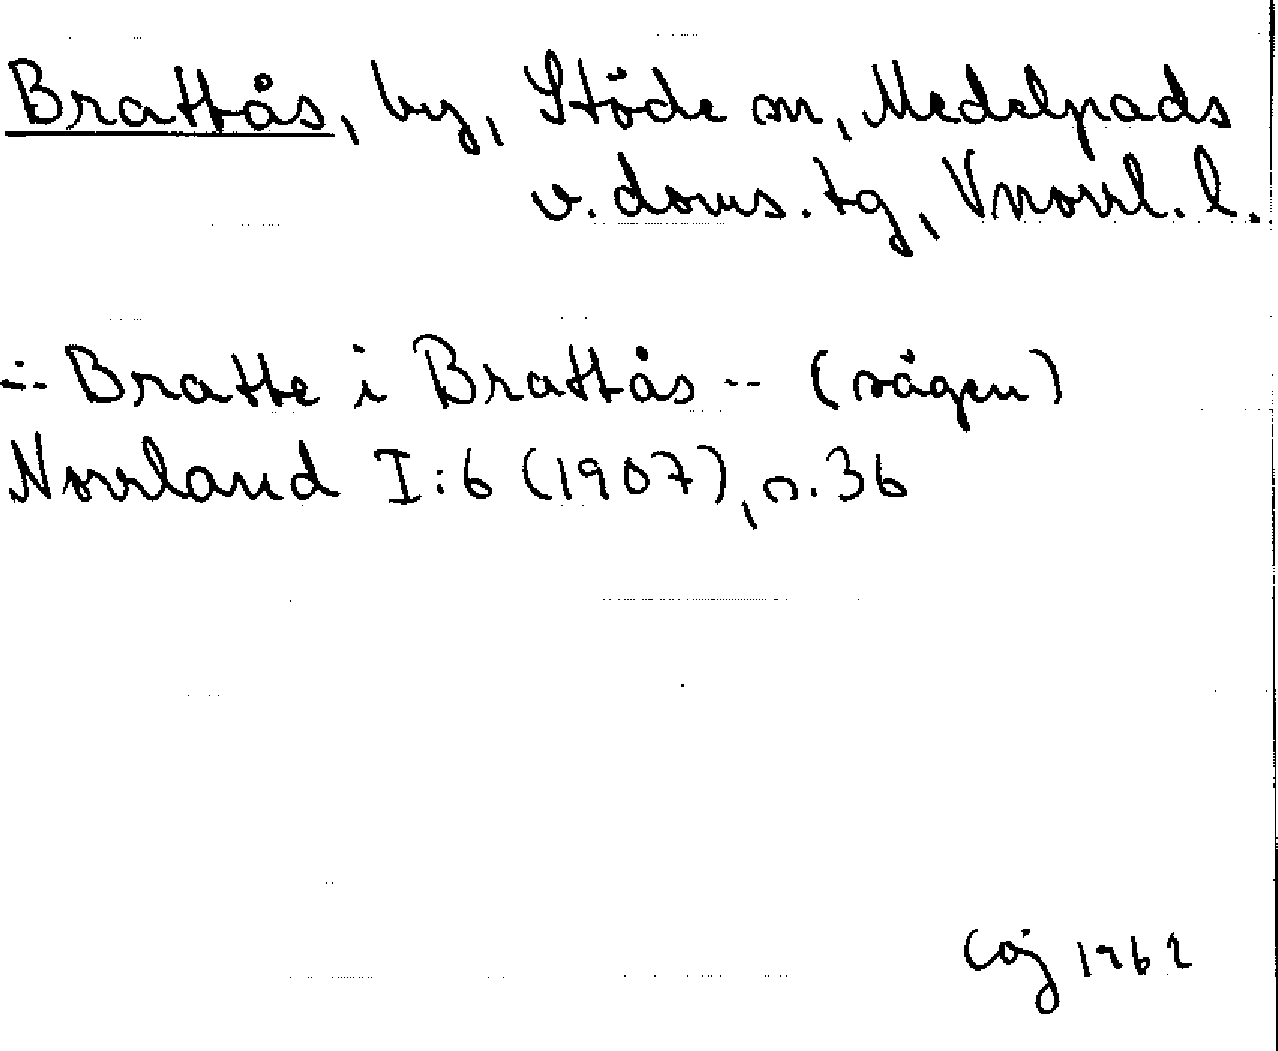 Brattås, by, Stöde sn, Medelpads
v. doms. tg, Vnorrl. l.
-:- Bratte i Brattås -- (sägen)
Norrland I:6 (1907), s. 36
CöJ 1962